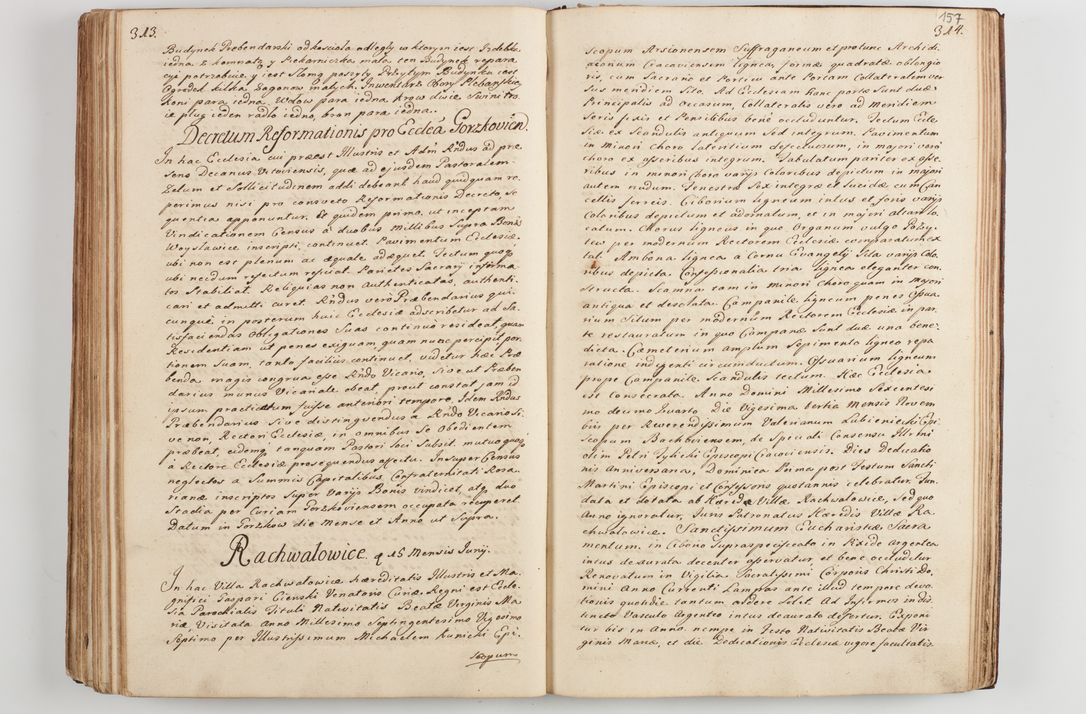 313.
Budynek Prebendarski od kościoła odległy w ktorym iest Izdebka
iedna z komnatą y Piekarniczka mała ten Budynek repara-
cyi potrzebuie y iest słomą poszyty Przytym Budynku iest
Ogrodek kilka zagonow małych. Inwentarz Obory Plebanskiey
Koni para iedna, Wołow para iedna, krow dwie Swini tro-
ie pług ieden radło iedno, bron para iedna.
Decretum Reformationis pro Ecclea Gorzkovien.
In hac Ecclesia cui præest Illustris et Adm Rndus ad præ-
sens Decanus Vitoviensis, quæ ad ejusdem Pastoralem
Zelum et Sollicitudinem addi debeant haud quidquam re-
perimus nisi pro consveto Reformationis Decreto, se-
quentia apponuntur. Et quidem primo, ut inceptam
Vindicationem Census à duobus Millibus supra Bonis
Woysławice inscripti, continuet. Pavimentum Ecclesiæ.
ubi non est plenum ac æquale adæquet. Tectum quoq
ubi necdum refectum reficiat. Parietes Sacrarij informa-
tos stabiliat. Reliquias non authenticatas, authenti-
cari et admitti curet. Rndus vero Præbendarius qui-
cunque in posterum huic Ecclesiæ adscribetur ad sa-
tisfaciendas Obligationes Suas continuo resideat, quam
Residentiam ut penes exiguam, quam nunc percipit por-
tionem Suam, tanto facilius continuet, videtur hæc Præ-
benda magis congrua esse Rndo Vicario, sive ut Præben-
darius munus Vicariale obeat, prout constat jam id
ipsum practicatum fuisse anteriori tempore. Idem Rndus
Præbendarius sive distingvendus a Rndo Vicario si-
ve non, Rectori Ecclesiæ, in omnibus se Obedientem
præbeat, eidemq tanquam Pastori loci Subsit. mutuo quoq
a Rectore Ecclesiæ prosequendus affectu. Insuper Census
neglectos a Summis Capitalibus Confraternitati Rosa-
rianæ inscriptos super varijs Bonis vindicet, atq duo
Stadia per Curiam Gorzkoviensem occupata recuperet
Datum in Gorzkow die Mense et Anno ut supra.
Rachwałowice. q 15 Mensis Junij.
In hac Villa Rachwałowice hæreditatis Illustris et Ma-
gnifici Gaspari Cienski Venatoris Curiæ Regni est Eccle-
sia Parochialis Tituli Nativitatis Beatæ Virginis Ma-
riæ Visitata Anno Millesimo Septingentesimo Vigesimo
Septimo per Illustrissimum Michaelem Kunicki Epi-
scopum
157
314.
scopum Arsionensem Suffraganeum et protunc Archidi-
aconum Cracoviensem lignea, formæ quadratæ oblongio-
ris, cum Sacrario et Porticu ante Portam Collateralem ver-
sus meridiem sito. Ad Ecclesiam hanc portæ sunt duæ
Principalis ad occasum, Collateralis vero ad Meridiem
Seris fixis et Pensilibus bene occluduntur. Tectum Eccle-
siæ ex Scandulis antiquum sed integrum. Pavimentum
in minori Choro latentium defectuosum, in majori vero
choro ex asseribus integrum. Tabulatum pariter ex asse-
ribus in minori Choro varijs Coloribus depictum in majori
autem nudum. Fenestræ sex integræ et lucidæ cum Can-
cellis ferreis. Ciborium ligneum intus et foris varijs
Coloribus depictum et adornatum, et in majori altari lo-
catum. Chorus ligneus in quo Organum vulgo Pozy-
tew per modernum Rectorem Ecclesiæ comparatum ex-
tat. Ambona lignea a Cornu Evangelij sita varijs Colo-
ribus depicta. Confessionalia tria lignea eleganter con-
structa. Scamna tam in minori Choro quam in majori
antiqua et desolata. Campanile ligneum penes Ossua-
rium situm per modernum Rectorem Ecclesiæ in par-
te restauratum in quo Campanæ sunt duæ una bene-
dicta. Cæmeterium amplum sepimento ligneo repa-
ratione indigenti circumductum. Ossuarium ligneum
prope Campanile Scandulis tectum. Hæc Ecclesia
est Consecrata. Anno Domini Millesimo Sexcentesi-
mo decimo Quarto Die Vigesima tertia Mensis Novem-
bris per Reverendissimum Valerianum Lubieniecki Epi-
scopum Bachoviensem, de Speciali Consensu Illrmi
olim Petri Tylicki Episcopi Cracoviensis. Dies Dedicatio-
nis Anniversaria, Dominica Prima post Festum Sancti
Martini Episcopi et Confessoris quotannis celebratur. Fun-
data et dotata ab Hærede Villæ Rachwałowice, sed quo
Anno ignoratur, Juris Patronatus Hæredis Villæ Ra-
chwałowice. Sanctissimum Eucharistiæ Sacra-
mentum. in Ciborio supraspecificato in Pixide argentea
intus deaurata decenter asservatur et bene occluditur
Renovatum in Vigilia Sacratissimi Corporis Christi Do-
mini Anno Currenti Lampas ante illud tempore devo-
tionis quotidie tantum ardere solet. Ad Infirmos in dis-
tincto Vasculo argenteo intus deaurato defertur. Exponi-
tur bis in Anno, nempe in Festo Nativitatis Beatæ Vir-
ginis Mariæ, et die Dedicationis Ecclesiæ vigore facultatis.